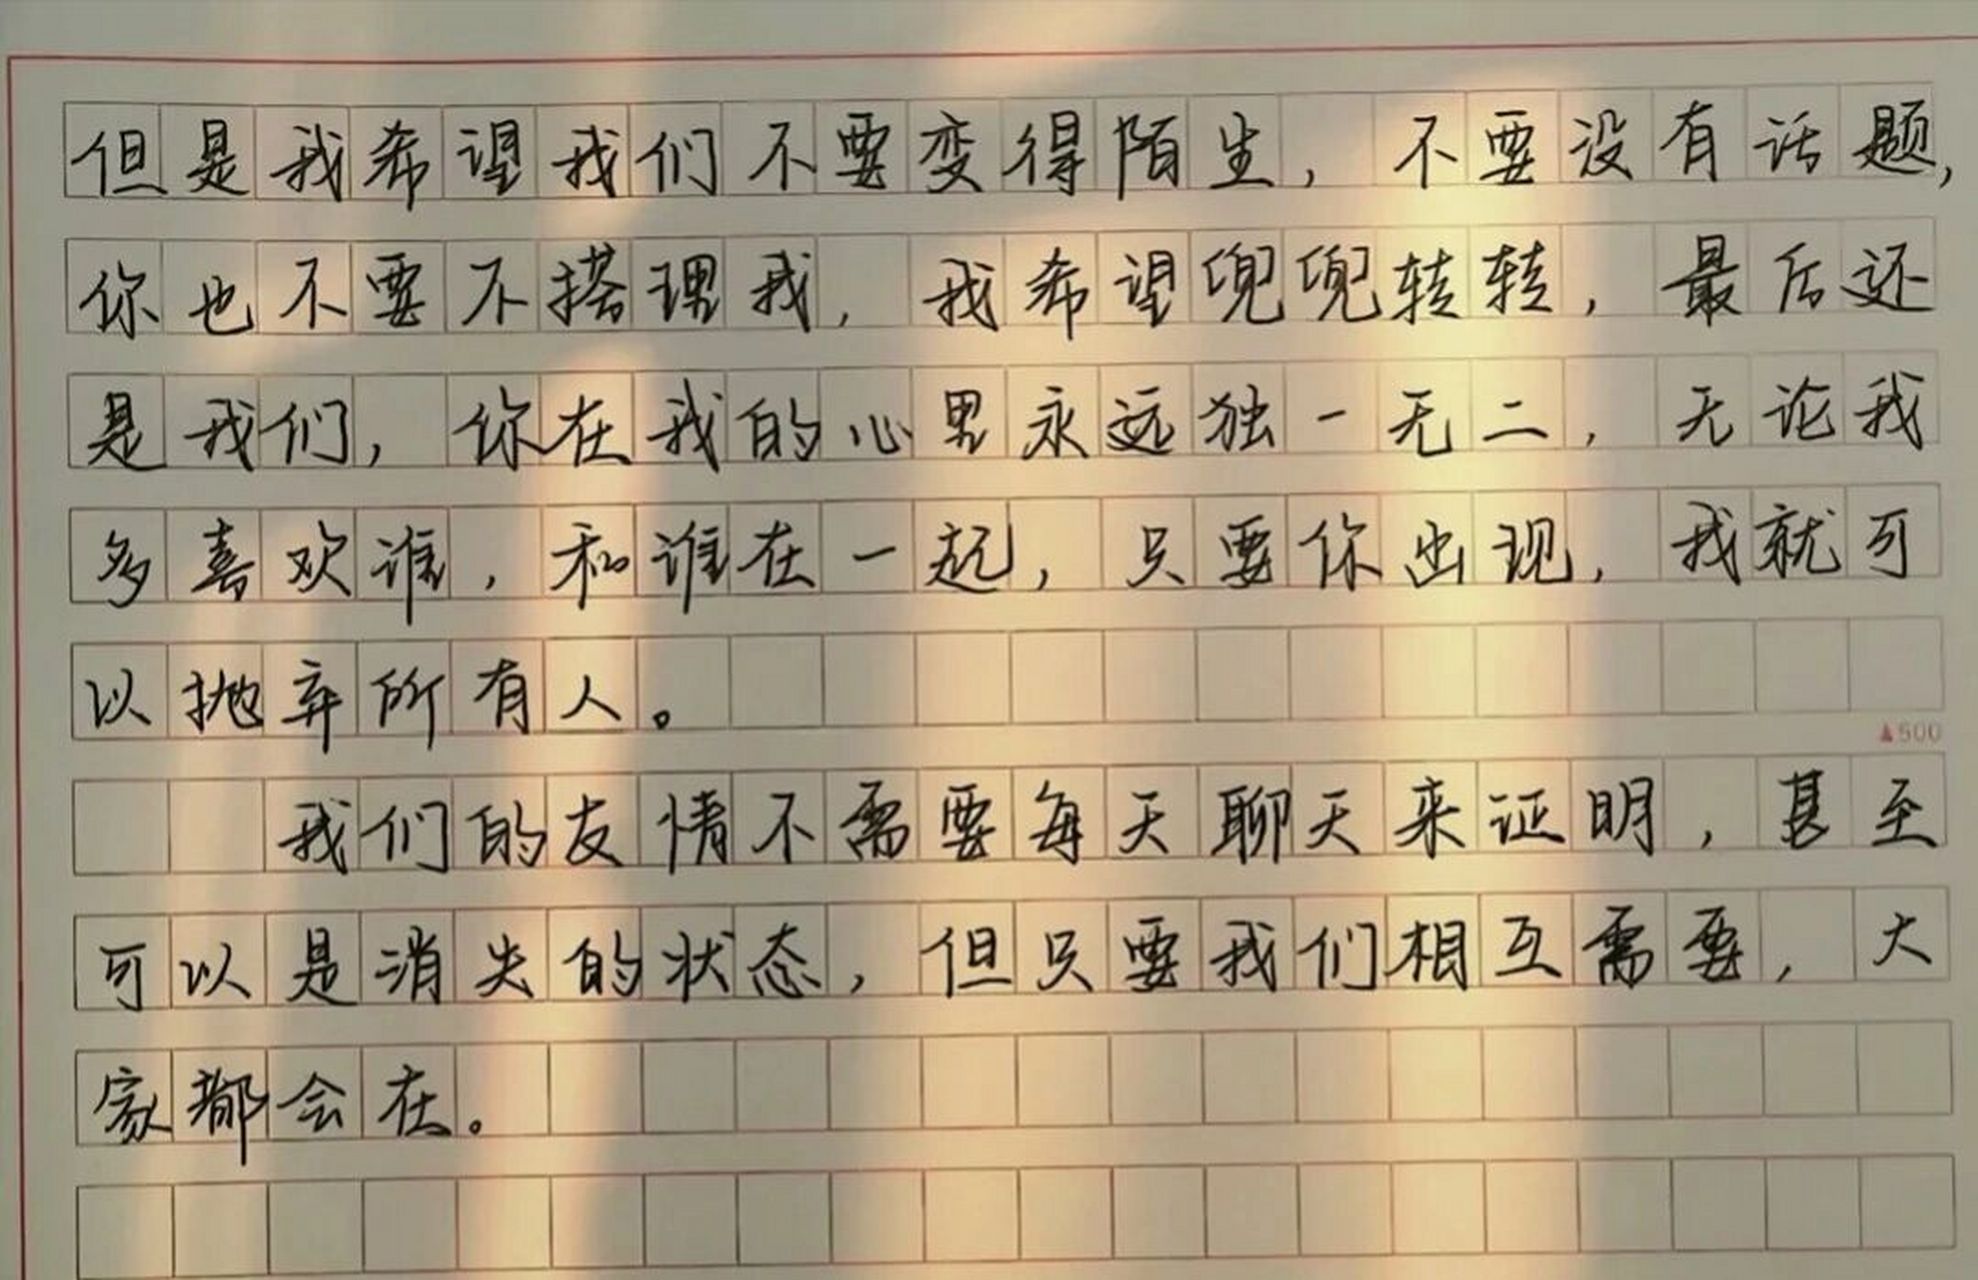 但是我希望我们不要变得陌生，不要没有话题，
你也不要不搭理我，我希望兜兜转转，最后还
是我们，你在我的心里永远独一无二，无论我
多喜欢谁，和谁在一起，只要你出现，我就可
以抛弃所有人。
▲500
我们的友情不需要每天聊天来证明，甚至
可以是消失的状态，但只要我们相互需要，大
家都会在。